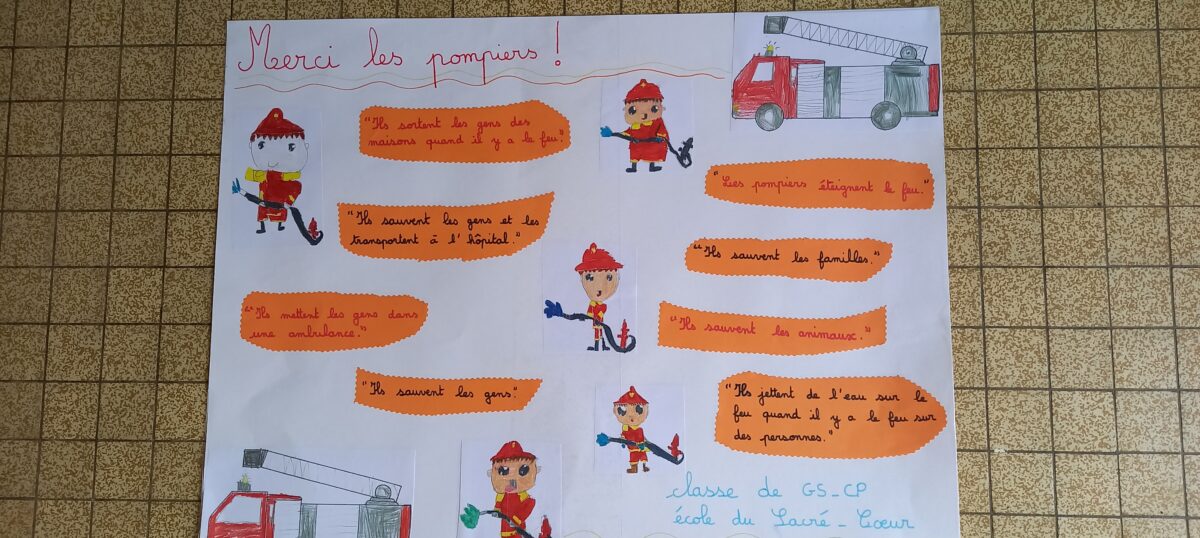 Merci les pompiers !
"Ils sortent les gens des
maisons quand il y a le feu."
"Les pompiers éteignent le feu."
"Ils sauvent les gens et les
transportent à l'hôpital."
"Ils sauvent les familles."
"Ils mettent les gens dans
une ambulance."
"Ils sauvent les animaux."
"Ils sauvent les gens."
"Ils jettent de l'eau sur le
feu quand il y a le feu sur
des personnes."
classe de GS-CP
école du Sacré-Cœur